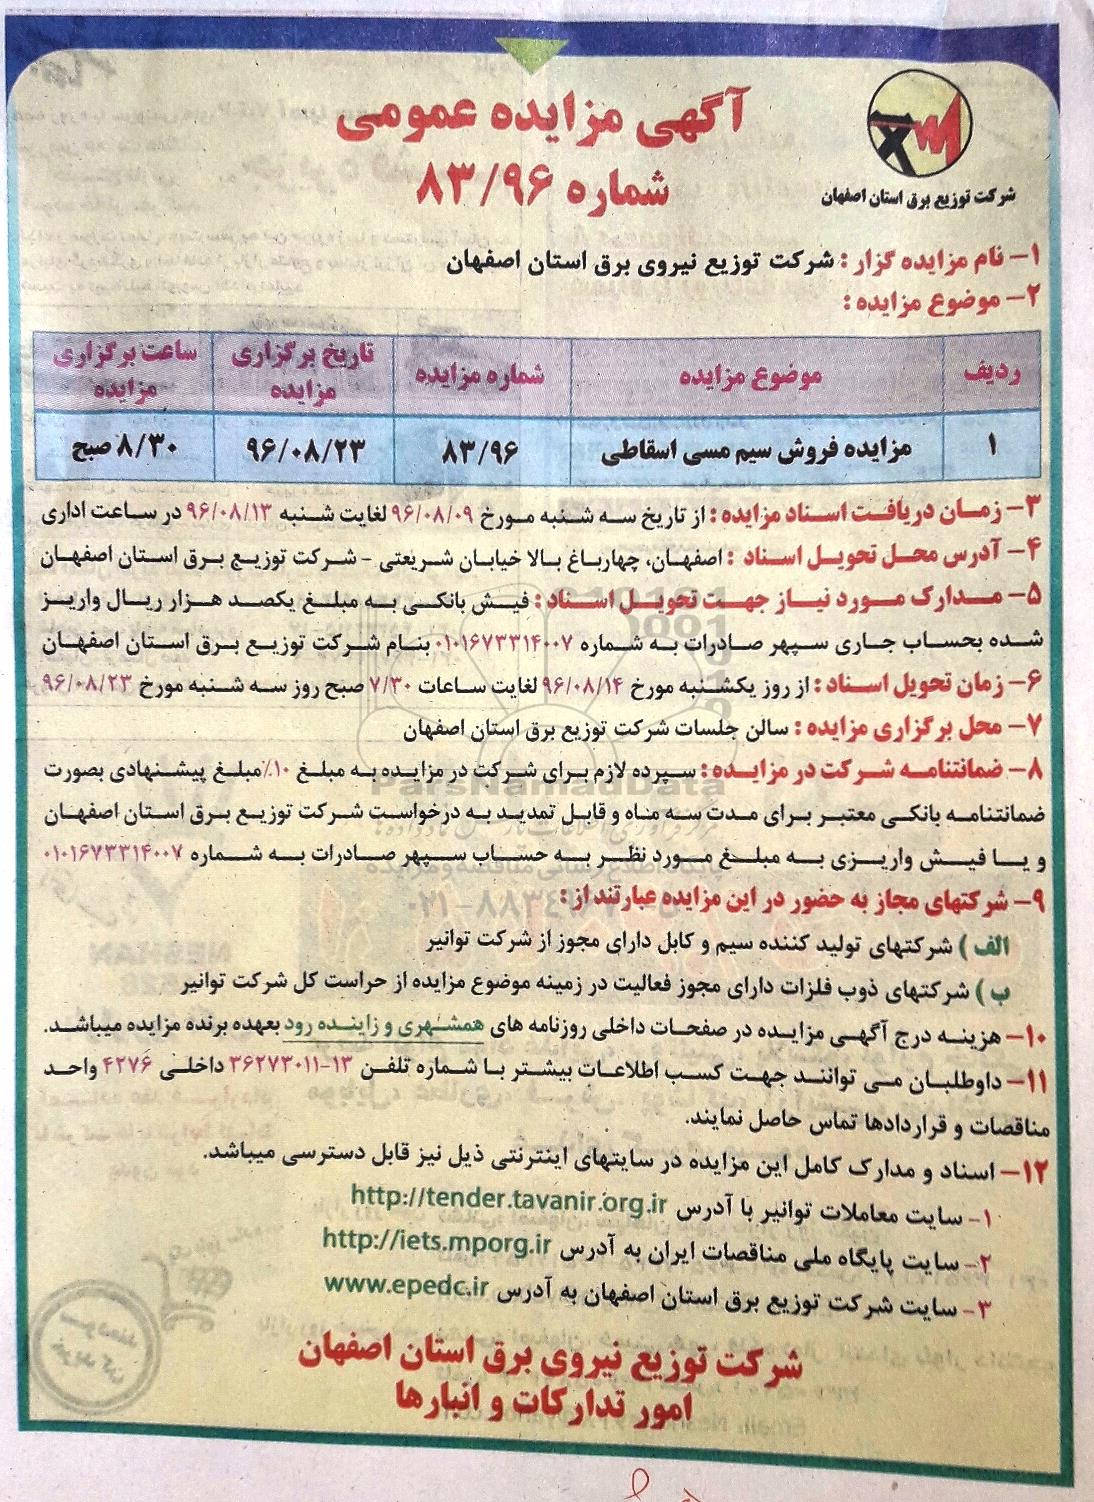 آگهی مزایده عمومی
شماره ۸۳/۹۶
شرکت توزیع برق استان اصفهان
۱- نام مزایده گزار : شرکت توزیع نیروی برق استان اصفهان
۲- موضوع مزایده :
ردیف موضوع مزایده شماره مزایده تاریخ برگزاری مزایده ساعت برگزاری مزایده
۱ مزایده فروش سیم مسی اسقاطی ۸۳/۹۶ ۹۶/۰۸/۲۳ ۸/۳۰ صبح
۳- زمان دریافت اسناد مزایده : از تاریخ سه شنبه مورخ ۹۶/۰۸/۰۹ لغایت شنبه ۹۶/۰۸/۱۳ در ساعت اداری
۴- آدرس محل تحویل اسناد : اصفهان، چهارباغ بالا خیابان شریعتی - شرکت توزیع برق استان اصفهان
۵- مدارک مورد نیاز جهت تحویل اسناد : فیش بانکی به مبلغ یکصد هزار ریال واریز
شده بحساب جاری سپهر صادرات به شماره ۰۱۰۱۶۷۳۳۱۴۰۰۷ بنام شرکت توزیع برق استان اصفهان
۶- زمان تحویل اسناد : از روز یکشنبه مورخ ۹۶/۰۸/۱۴ لغایت ساعات ۷/۳۰ صبح روز سه شنبه مورخ ۹۶/۰۸/۲۳
۷- محل برگزاری مزایده : سالن جلسات شرکت توزیع برق استان اصفهان
۸- ضمانتنامه شرکت در مزایده : سپرده لازم برای شرکت در مزایده به مبلغ ۱۰٪ مبلغ پیشنهادی بصورت
ضمانتنامه بانکی معتبر برای مدت سه ماه و قابل تمدید به درخواست شرکت توزیع برق استان اصفهان
و یا فیش واریزی به مبلغ مورد نظر به حساب سپهر صادرات به شماره ۰۱۰۱۶۷۳۳۱۴۰۰۷
۹- شرکتهای مجاز به حضور در این مزایده عبارتند از :
الف ) شرکتهای تولید کننده سیم و کابل دارای مجوز از شرکت توانیر
ب ) شرکتهای ذوب فلزات دارای مجوز فعالیت در زمینه موضوع مزایده از حراست کل شرکت توانیر
۱۰- هزینه درج آگهی مزایده در صفحات داخلی روزنامه های همشهری و زاینده رود بعهده برنده مزایده میباشد.
۱۱- داوطلبان می توانند جهت کسب اطلاعات بیشتر با شماره تلفن ۱۳-۳۶۲۷۳۰۱۱ داخلی ۴۲۷۶ واحد
مناقصات و قراردادها تماس حاصل نمایند.
۱۲- اسناد و مدارک کامل این مزایده در سایتهای اینترنتی ذیل نیز قابل دسترسی میباشد.
۱- سایت معاملات توانیر با آدرس http://tender.tavanir.org.ir
۲- سایت پایگاه ملی مناقصات ایران به آدرس http://iets.mporg.ir
۳- سایت شرکت توزیع برق استان اصفهان به آدرس www.epedc.ir
شرکت توزیع نیروی برق استان اصفهان
امور تدارکات و انبارها
ParsNamadData